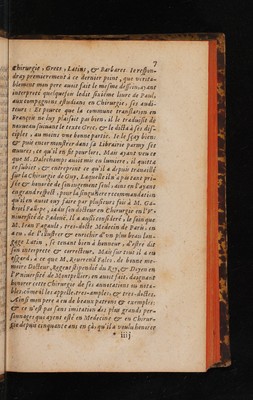 7
Chirurgie, Grecs, Latins, & Barbares. Ie respon-
dray premierement à ce dernier point, que verita-
blement mon pere auoit fait le mesme dessein, ayant
interpreté quelquesfois ledit sixiéme liure de Paul,
aux compagnons estudians en Chirurgie, ses audi-
teurs: Et pource que la commune translation en
François ne luy plaisoit pas bien, il le traduisit de
nouueau suiuant le texte Grec, & le dicta à ses dis-
ciples, au moins vne bonne partie. Ie le sçay bien:
& puis encor monstrer dans sa Librairie parmy ses
œuures, ce qu'il en fit pour lors. Mais ayant veu ce
que M. Dalechamps auoit mis en lumiere, il quitta
ce subiet, & entreprint ce qu'il a depuis transcrit
sur la Chirurgie de Guy, Laquelle il a par tout pri-
sée & honorée de singuliere seul, ains en l'ayant
en grand respect, pour la singuliere recommandation
qu'il en auoit ouy faire par plusieurs fois à M. Ga-
briel Falope, iadis son docteur en Chirurgie en l'V-
niuersité de Padoüe. Il a aussi consideré, le soin que
M. Iean Tagault, tres-docte Medecin de Paris, en
a eu, de l'illustrer & enrichir d'vn plus beau lan-
gage Latin, se tenant bien à honneur, d'estre dit
son interprete & correcteur. Mais sur tout il a eu
esgard, à ce que M. Reuerend Falco, de bonne me-
moire Docteur, Regent stipendié du Roy, & Doyen en
l'Vniuersité de Montpelier, en auoit fait, daignant
honorer cette Chirurgie de ses annotations ou nota-
bles, comme il les appelle, tres-amples, & tres-doctes.
Ainsi mon pere a eu de beaux patrons & exemples:
& ce n'est pas sans imitation des plus grands per-
sonnages qui ayent esté en Medecine & en Chirur-
gie depuis cinquante ans en çà, qu'il a voulu honorer
* iiij